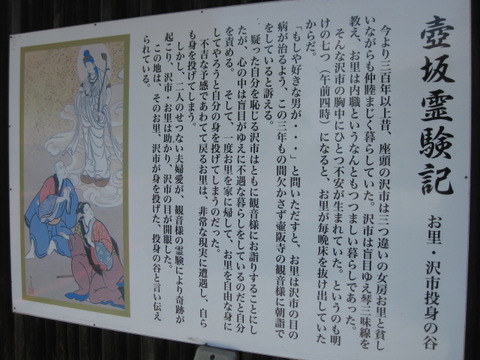 壺坂霊験記
お里・沢市投身の谷
今より三百年以上昔、座頭の沢市は三つ違いの女房お里と貧し
いながらも仲睦まじく暮らしていた。沢市は盲目ゆえ琴三味線を
教え、お里は内職というなんともつつましい暮らしであった。
そんな沢市の胸中にひとつ不安が生まれていた。というのも明
けの七つ（午前四時）になると、お里が毎晩床を抜け出していた
からだ。
「もしや好きな男が・・・」と問いただすと、お里は沢市の目の
病が治るよう、この三年もの間欠かさず壺阪寺の観音様に朝詣で
をしていると訴える。
疑った自分を恥じる沢市はともに観音様にお詣りすることにし
たが、心の中は盲目がゆえに不遇な暮らしをしているのだと自分
を責める。そして、一度お里を家に帰して、お里を自由な身に
してやろうと自分の身を投げてしまうのだった。
不吉な予感であわてて戻るお里は、非常な現実に遭遇し、自ら
も身を投げてしまう。
しかし、二人のせつない夫婦愛が、観音様の霊験により奇跡が
起こり、沢市・お里は助かり、沢市の目が開眼した。
この地は、そのお里、沢市が身を投げた、投身の谷と言い伝え
られている。